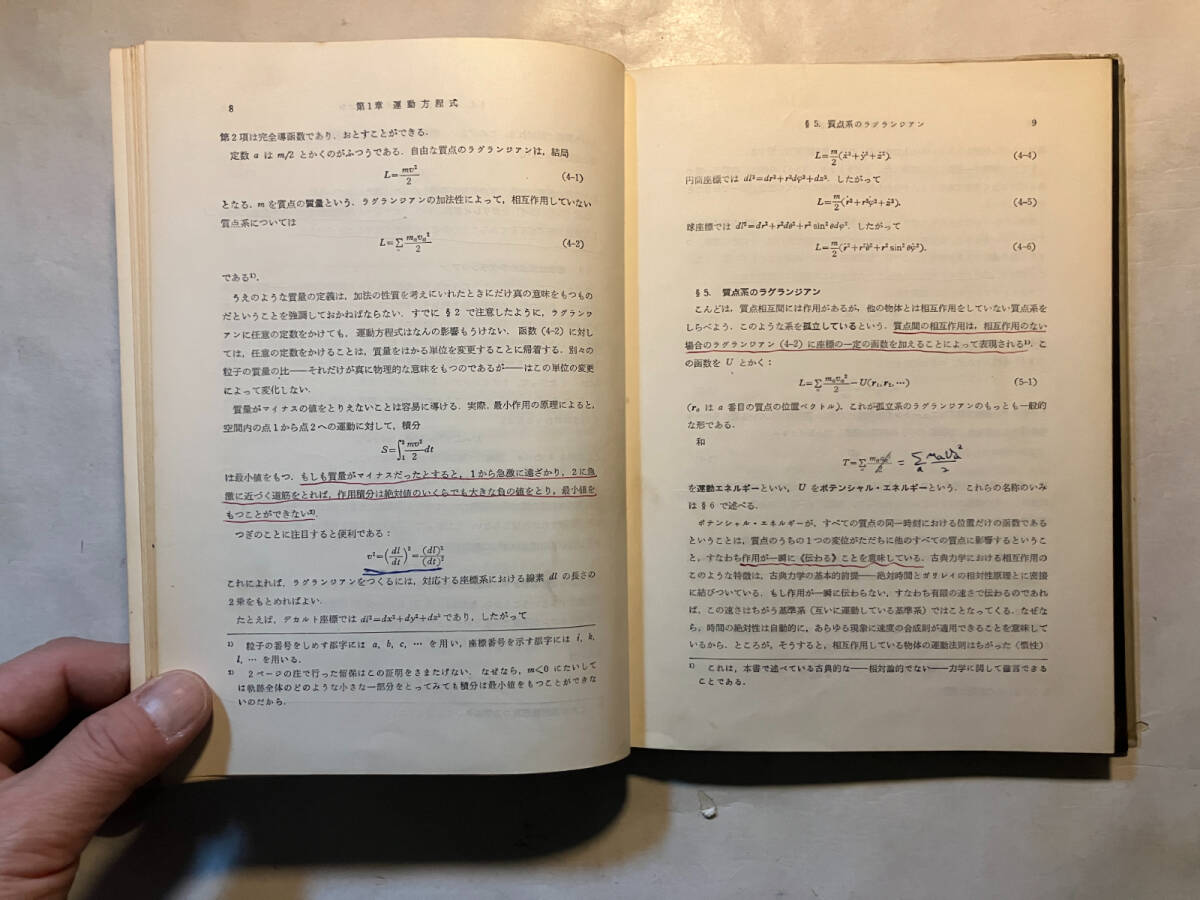 8
第1章 運動方程式
第2項は完全導函数であり、おとすことができる.
定数 a は m/2 とかくのがふつうである. 自由な質点のラグランジアンは, 結局
L=mv²/2 (4-1)
となる. m を質点の質量という. ラグランジアンの加法性によって, 相互作用していない
質点系については
L=Σ mₐvₐ²/2 (4-2)
である¹⁾.
うえのような質量の定義は, 加法の性質を考えにいれたときにだけ真の意味をもつもの
だということを強調しておかねばならない. すでに §2 で注意したように, ラグランジ
アンに任意の定数をかけても, 運動方程式はなんの影響もうけない. 函数 (4-2) に対し
ては, 任意の定数をかけることは, 質量をはかる単位を変更することに帰着する. 別々の
粒子の質量の比——それだけが真に物理的な意味をもつのであるが——はこの単位の変更
によって変化しない.
質量がマイナスの値をとりえないことは容易に導ける. 実際, 最小作用の原理によると,
空間内の点1から点2への運動に対して, 積分
S=∫₁² mv²/2 dt
は最小値をもつ. もしも質量がマイナスだったとすると, 1から急激に遠ざかり, 2に急
激に近づく道筋をとれば, 作用積分は絶対値のいくらでも大きな負の値をとり, 最小値を
もつことができない²⁾.
つぎのことに注目すると便利である:
v²=(dl/dt)²=(dl)²/(dt)²
これによれば, ラグランジアンをつくるには, 対応する座標系における線素 dl の長さの
2乗をもとめればよい.
たとえば, デカルト座標では dl²=dx²+dy²+dz² であり, したがって
1) 粒子の番号をしめす添字には a, b, c, … を用い, 座標番号を示す添字には i, k,
l, … を用いる.
2) 2ページの注で行った留保はこの証明をさまたげない. なぜなら, m<0 にたいして
は軌跡全体のどのような小さな一部分をとってみても積分は最小値をもつことができな
いのだから.
§5. 質点系のラグランジアン
9
L=m/2(ẋ²+ẏ²+ż²). (4-4)
円筒座標では dl²=dr²+r²dφ²+dz². したがって
L=m/2(ṙ²+r²φ̇²+ż²). (4-5)
球座標では dl²=dr²+r²dθ²+r² sin²θdφ². したがって
L=m/2(ṙ²+r²θ̇²+r² sin²θφ̇²). (4-6)
§5. 質点系のラグランジアン
こんどは, 質点相互間には作用があるが, 他の物体とは相互作用をしていない質点系を
しらべよう. このような系を孤立しているという. 質点間の相互作用は, 相互作用のない
場合のラグランジアン (4-2) に座標の一定の函数を加えることによって表現される¹⁾. こ
の函数を U とかく:
L=Σ mₐvₐ²/2−U(r₁, r₂, …) (5-1)
(rₐ は a 番目の質点の位置ベクトル). これが孤立系のラグランジアンのもっとも一般的
な形である.
和
T=Σ = Σₐ mₐvₐ²/2
を運動エネルギーといい, U をポテンシャル・エネルギーという. これらの名称のいみ
は §6 で述べる.
ポテンシャル・エネルギーが, すべての質点の同一時刻における位置だけの函数である
ということは, 質点のうちの1つの変位がただちに他のすべての質点に影響するというこ
と, すなわち作用が一瞬に《伝わる》ことを意味している. 古典力学における相互作用の
このような特徴は, 古典力学の基本的前提——絶対時間とガリレイの相対性原理とに密接
に結びついている. もし作用が一瞬に伝わらない, すなわち有限の速さで伝わるのであれ
ば, この速さはちがう基準系 (互いに運動している基準系) ではことなってくる. なぜな
ら, 時間の絶対性は自動的に, あらゆる現象に速度の合成則が適用できることを意味して
いるから. ところが, そうすると, 相互作用している物体の運動法則はちがった (慣性)
1) これは, 本書で述べている古典的な——相対論的でない——力学に関して確言できる
ことである.